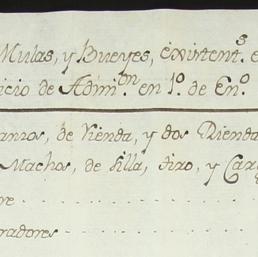 Mulas, y Bueyes, existent.s e
icio de Admi.on en 1.o de En.o
anros, de Rienda, y dos Rienda
Machos, de silla, tiro, y Carg
re
radores